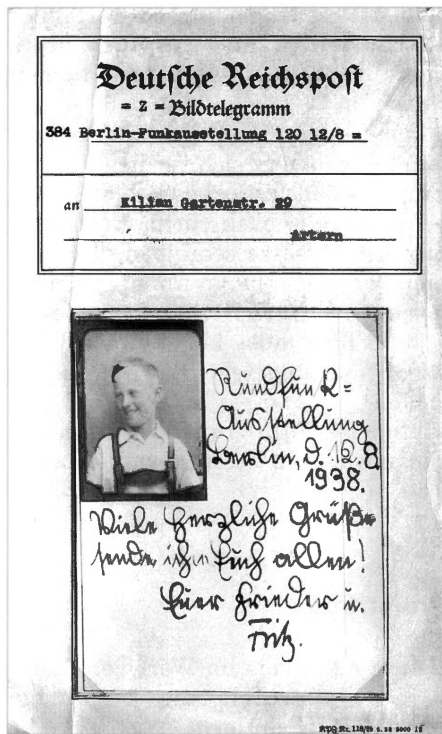 Deutsche Reichspost
= Z = Bildtelegramm
384 Berlin-Funkausstellung 120 12/8 =
an Kilian Gartenstr. 29
Artern
Rundfunk-
Ausstellung
Berlin, d. 12.8.
1938.
Viele herzliche Grüße
sende ich Euch allen!
Euer Frieder u.
Fritz.